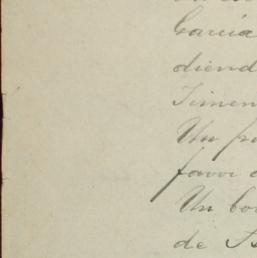 Garcia
diend
Timen
Un p
favor d
Un bo
de